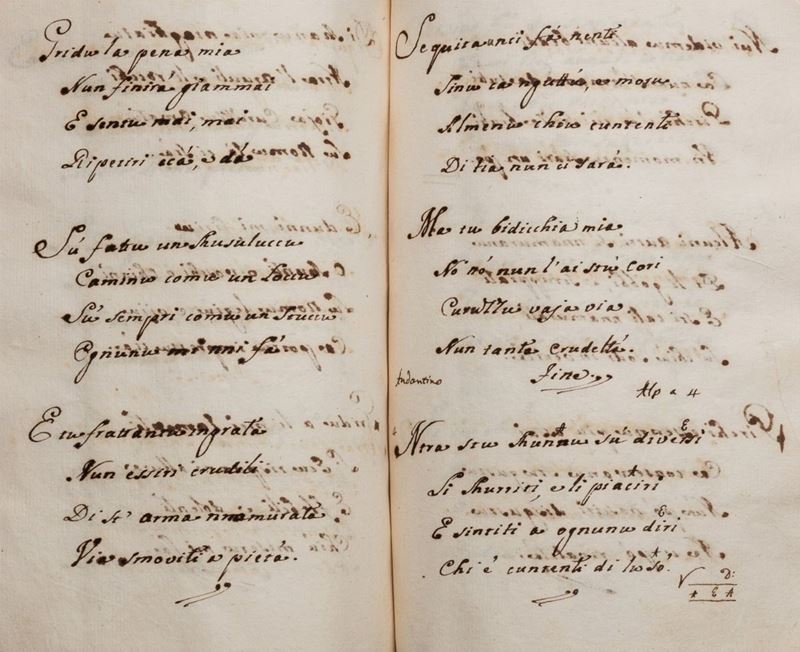 Gridu la pena mia
Nun finirà giammai
E sentu mai, mai
Ripetiri ccà, e dà
Sú fattu un shusuluccu
Caminu comu un Loccu
Sú sempri comu un Stuccu
Ognunu mi nni fà
E tu frattantu ingrata
Nun essiri crudili
Di st' arma nnamurata
Via smoviti a pietà.
Sequita unci fà nenti
Sinu ca ngutta, e mosu
Almenu chiu cuntenti
Di tia nun ci sarà.
Ma tu bidicchia mia
Nò nò, nun l'ai stù Cori
Curuzzu vaja via
Nun tanta crudeltà.
Fine.
Andantino
Alp a 4
Ntra stu shunnu su' diversi
Li shurriti, e li piaciri
E sintiti a ognunu diri
Chi é cuntenti di lu so.
D:
A E A